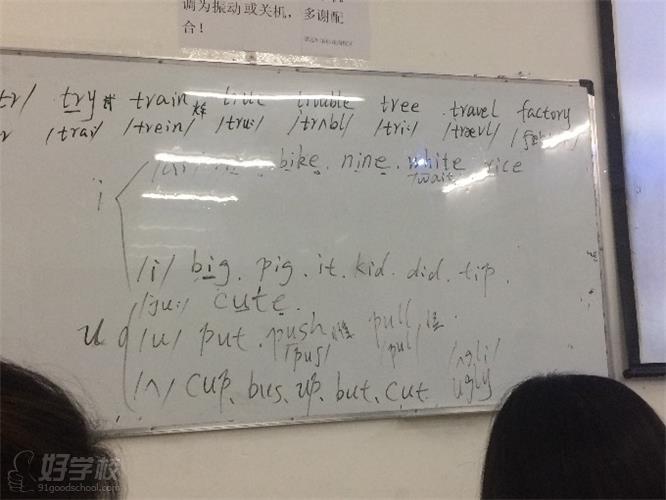 调为振动或关机，多谢配
合！
tr/ try train true trouble tree travel factory
/trai/ /trein/ /tru:/ /trʌbl/ /tri:/ /trævl/
i
bike. nine. white. rice
/wait
/i/ big. pig. it. kid. did. tip.
/ju:/ cute.
u /u/ put. push pull
/puʃ/ /pul/ /ʌgli/
/ʌ/ cup、bus、up、but、cut. ugly
好学校
91goodschool.com